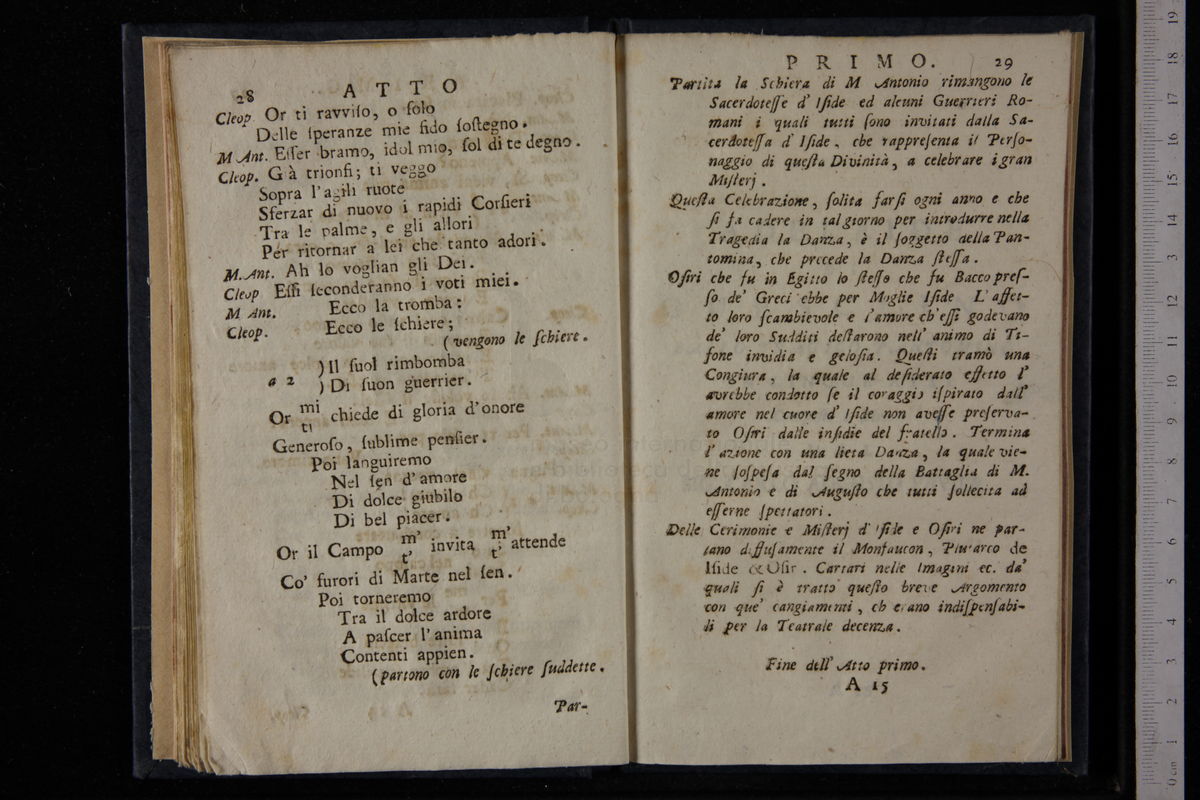 28 ATTO
Cleop Or ti ravviſo, o ſolo
Delle ſperanze mie fido ſoſtegno.
M Ant. Eſſer bramo, idol mio, ſol di te degno.
Cleop. G à trionfi; ti veggo
Sopra l'agili ruote
Sferzar di nuovo i rapidi Corſieri
Tra le palme, e gli allori
Per ritornar a lei che tanto adori.
M. Ant. Ah lo voglian gli Dei.
Cleop Eſſi ſeconderanno i voti miei.
M Ant. Ecco la tromba:
Cleop. Ecco le ſchiere;
(vengono le ſchiere.
a 2 ) Il ſuol rimbomba
) Di ſuon guerrier.
Or mi
ti chiede di gloria d'onore
Generoſo, ſublime penſier.
Poi languiremo
Nel ſen d'amore
Di dolce giubilo
Di bel piacer.
Or il Campo m'
t' invita m'
t' attende
Co' furori di Marte nel ſen.
Poi torneremo
Tra il dolce ardore
A paſcer l'anima
Contenti appien.
(partono con le ſchiere ſuddette.
Par-
PRIMO. 29
Partita la Schiera di M Antonio rimangono le
Sacerdoteſſe d' Iſide ed alcuni Guerrieri Ro-
mani i quali tutti ſono invitati dalla Sa-
cerdoteſſa d' Iſide, che rappreſenta il Perſo-
naggio di queſta Divinità, a celebrare i gran
Miſterj.
Queſta Celebrazione, ſolita farſi ogni anno e che
ſi fa cadere in tal giorno per introdurre nella
Tragedia la Danza, è il ſoggetto della Pan-
tomina, che precede la Danza ſteſſa.
Oſiri che fu in Egitto lo ſteſſo che fu Bacco preſ-
ſo de' Greci ebbe per Moglie Iſide L' affet-
to loro ſcambievole e l'amore ch'eſſi godevano
de' loro Sudditi deſtarono nell' animo di Ti-
fone invidia e geloſia. Queſti tramò una
Congiura, la quale al deſiderato effetto l'
avrebbe condotto ſe il coraggio iſpirato dall'
amore nel cuore d' Iſide non aveſſe preſerva-
to Oſiri dalle inſidie del fratello. Termina
l' azione con una lieta Danza, la quale vie-
ne ſoſpeſa dal ſegno della Battaglia di M.
Antonio e di Auguſto che tutti ſollecita ad
eſſerne ſpettatori.
Delle Cerimonie e Miſterj d' Iſide e Oſiri ne par-
lano diffuſamente il Monfaucon, Plutarco de
Iſide & Oſir. Cartari nelle Imagini ec. da'
quali ſi è tratto queſto breve Argomento
con que' cangiamenti, ch erano indiſpenſabi-
li per la Teatrale decenza.
Fine dell' Atto primo.
A 15